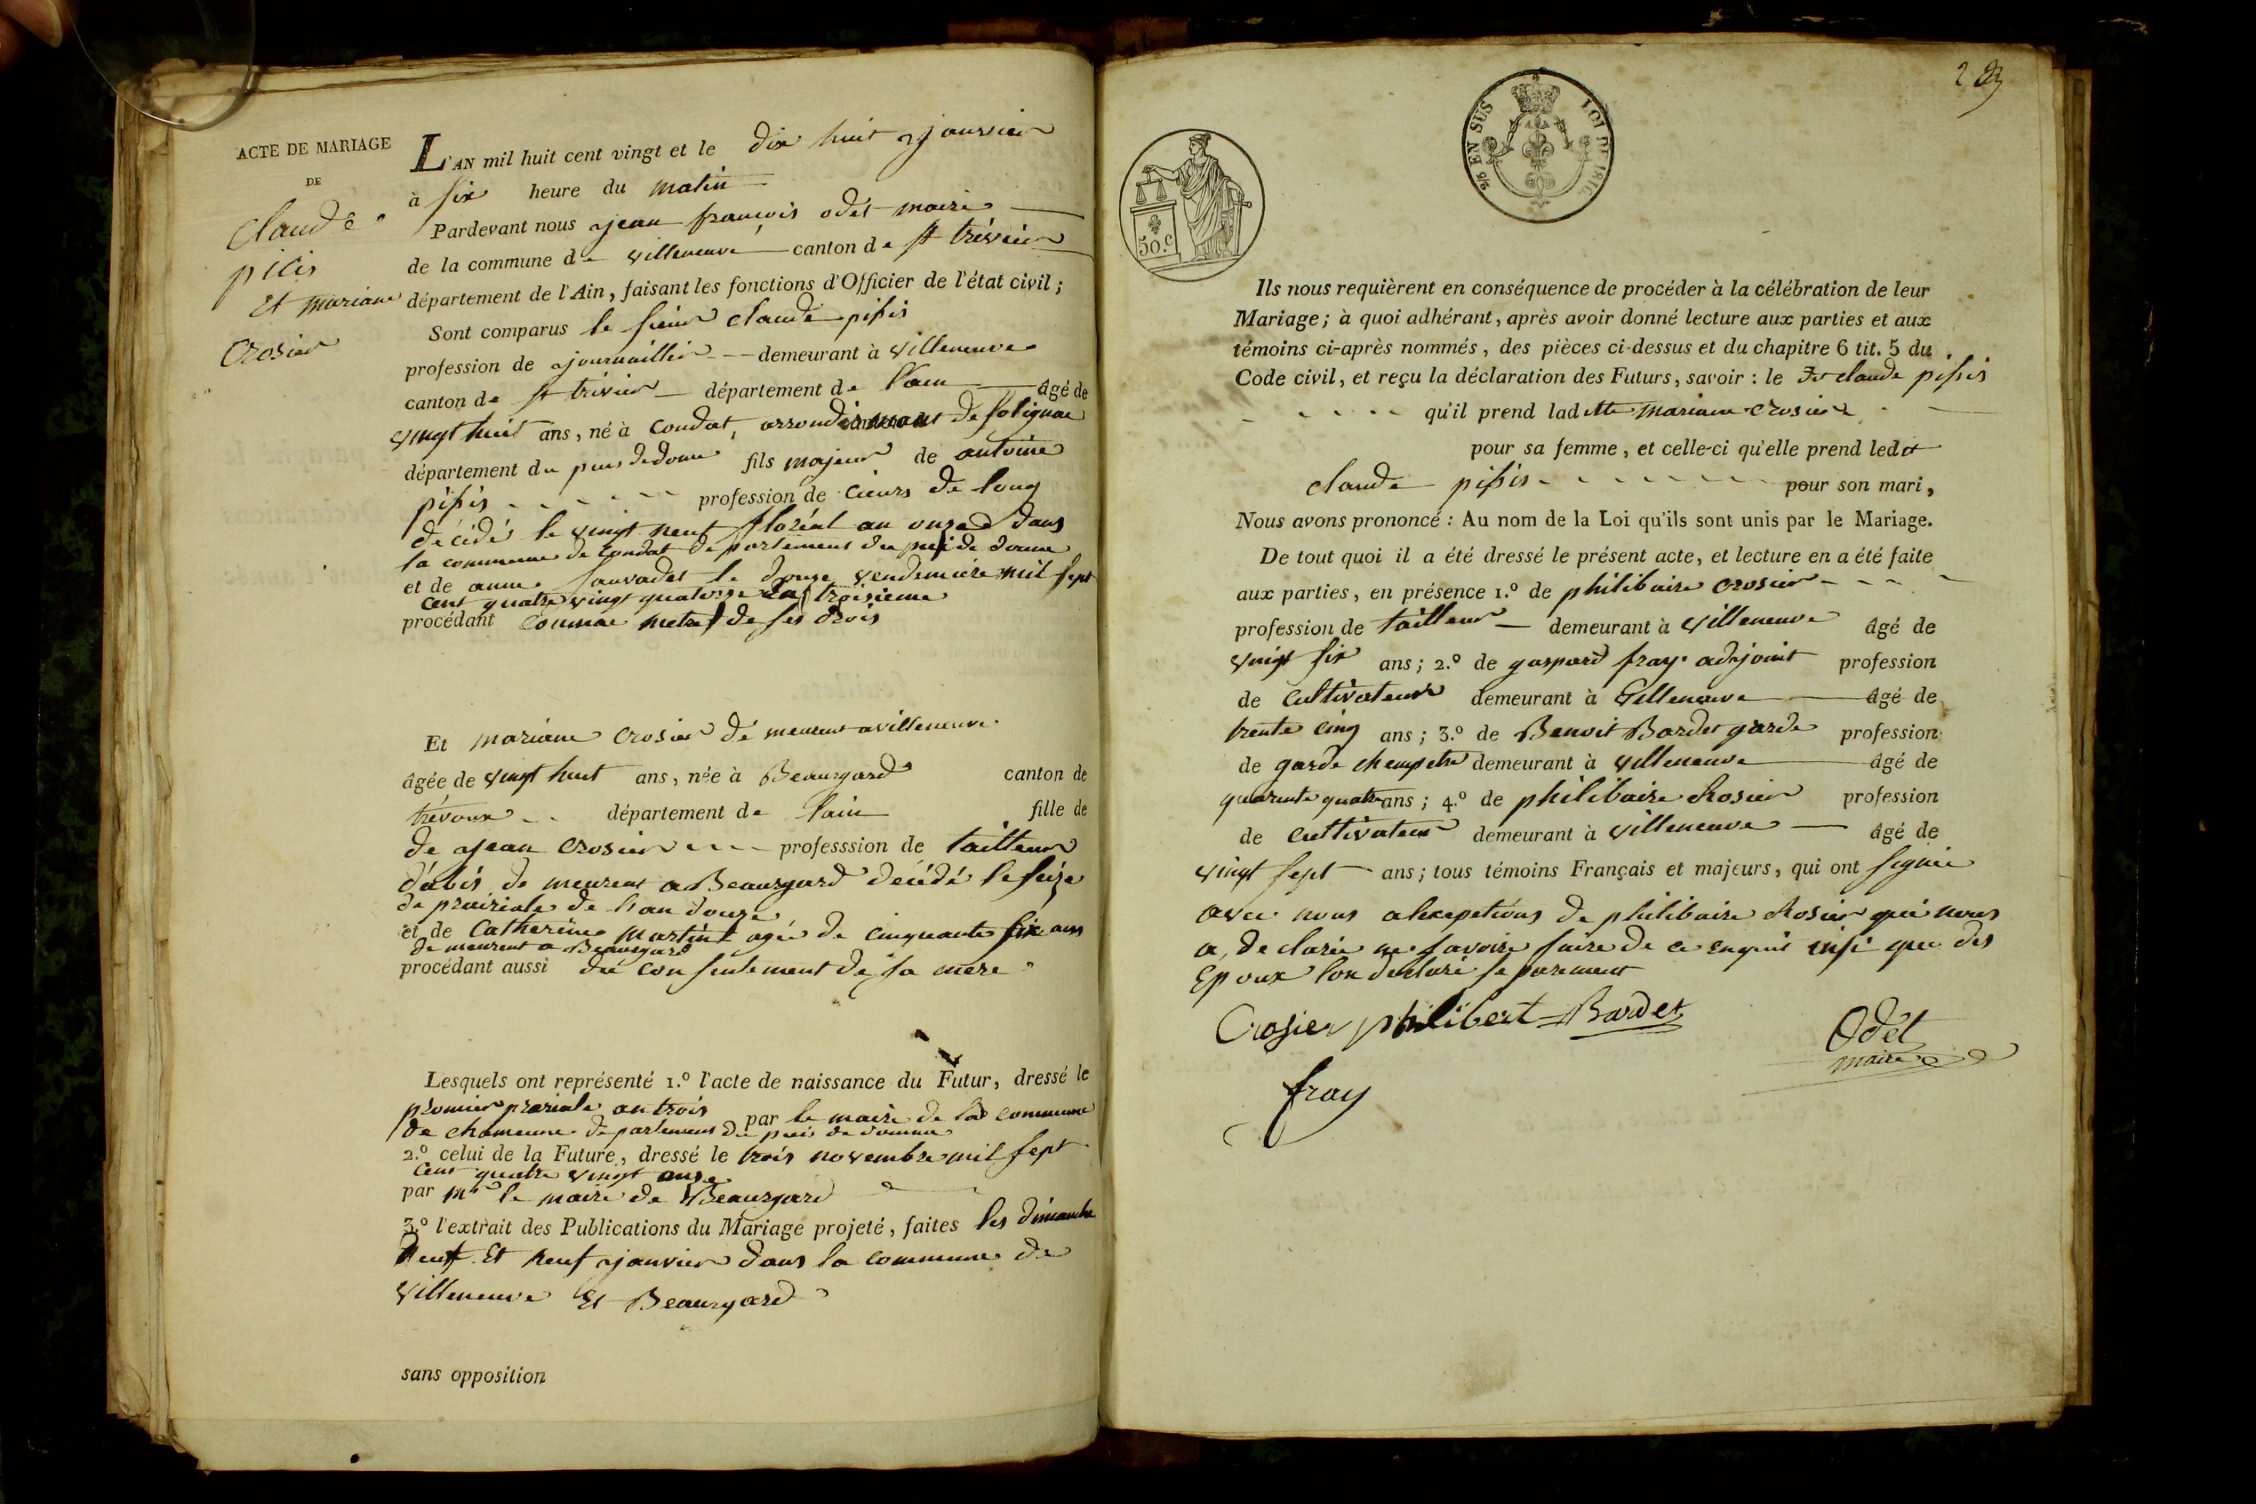 ACTE DE MARIAGE
DE
Claude
picis
Et mariane
Crosier
L'AN mil huit cent vingt et le dix huit janvier
à six heure du matin
Pardevant nous jean françois odet maire
de la commune de villeneuve canton de st trévier
département de l'Ain, faisant les fonctions d'Officier de l'état civil;
Sont comparus le sieur claude pissis
profession de journaillier demeurant à villeneuve
canton de st trivier département de l'ain âgé de
vingt huit ans, né à Condat, de
département du puis de dome fils majeur de antoine
pissis profession de cieurs de long
décédé le vingt neuf floréal an onze dans
la commune de Condat departement du pui de dome
et de anne sauvadet le douze vendemiere mil sept
cent quatre vingt quatorze troisieme
procédant comme metre de ses drois
Et mariane Crosier demeurent a villeneuve
âgée de vingt huit ans, née à Beauregard canton de
trévoux département de lain fille de
de jean Crosier professsion de tailleur
d'abis de meurent a Beauregard décédé le seize
de prairiale de l'an douze
et de Catherine martint agée de cinquante six ans
de meurent a Beauregard
procédant aussi du consentement de sa mere
Lesquels ont représenté 1.º l'acte de naissance du Futur, dressé le
promier prariale an trois par le maire de la commune
de departement du puis de domme
2.º celui de la Future, dressé le trois novembre mil sept
cent quatre vingt onze
par mr le maire de Beauregard
3.º l'extrait des Publications du Mariage projeté, faites les dimanche
deux Et neuf janvier dans la commune de
villeneuve Et Beauregard
sans opposition
5/6 EN SUS
LOI DE 1816
50.c
Ils nous requièrent en conséquence de procéder à la célébration de leur
Mariage; à quoi adhérant, après avoir donné lecture aux parties et aux
témoins ci-après nommés, des pièces ci-dessus et du chapitre 6 tit. 5 du
Code civil, et reçu la déclaration des Futurs, savoir: le dt claude pissis
qu'il prend ladette mariane crosier
pour sa femme, et celle-ci qu'elle prend ledit
claude pissis pour son mari,
Nous avons prononcé: Au nom de la Loi qu'ils sont unis par le Mariage.
De tout quoi il a été dressé le présent acte, et lecture en a été faite
aux parties, en présence 1.º de philibaire crosier
profession de tailleur demeurant à villeneuve âgé de
vingt six ans; 2.º de gaspard fray adjoint profession
de cultivateur demeurant à villeneuve âgé de
trente cinq ans; 3.º de Benoit Bardet garde profession
de garde chempetre demeurant à villeneuve âgé de
quarente quatre ans; 4.º de philibaire Rosier profession
de cultivateur demeurant à villeneuve âgé de
vingt sept ans; tous témoins Français et majeurs, qui ont signée
avec nous de philibaire Rosier qui nous
a, de clarée ne savoire faire de ce enquit insi que des
Epoux l'on declaré separement
Crosier philibert Bardet
Odet
maire
fray